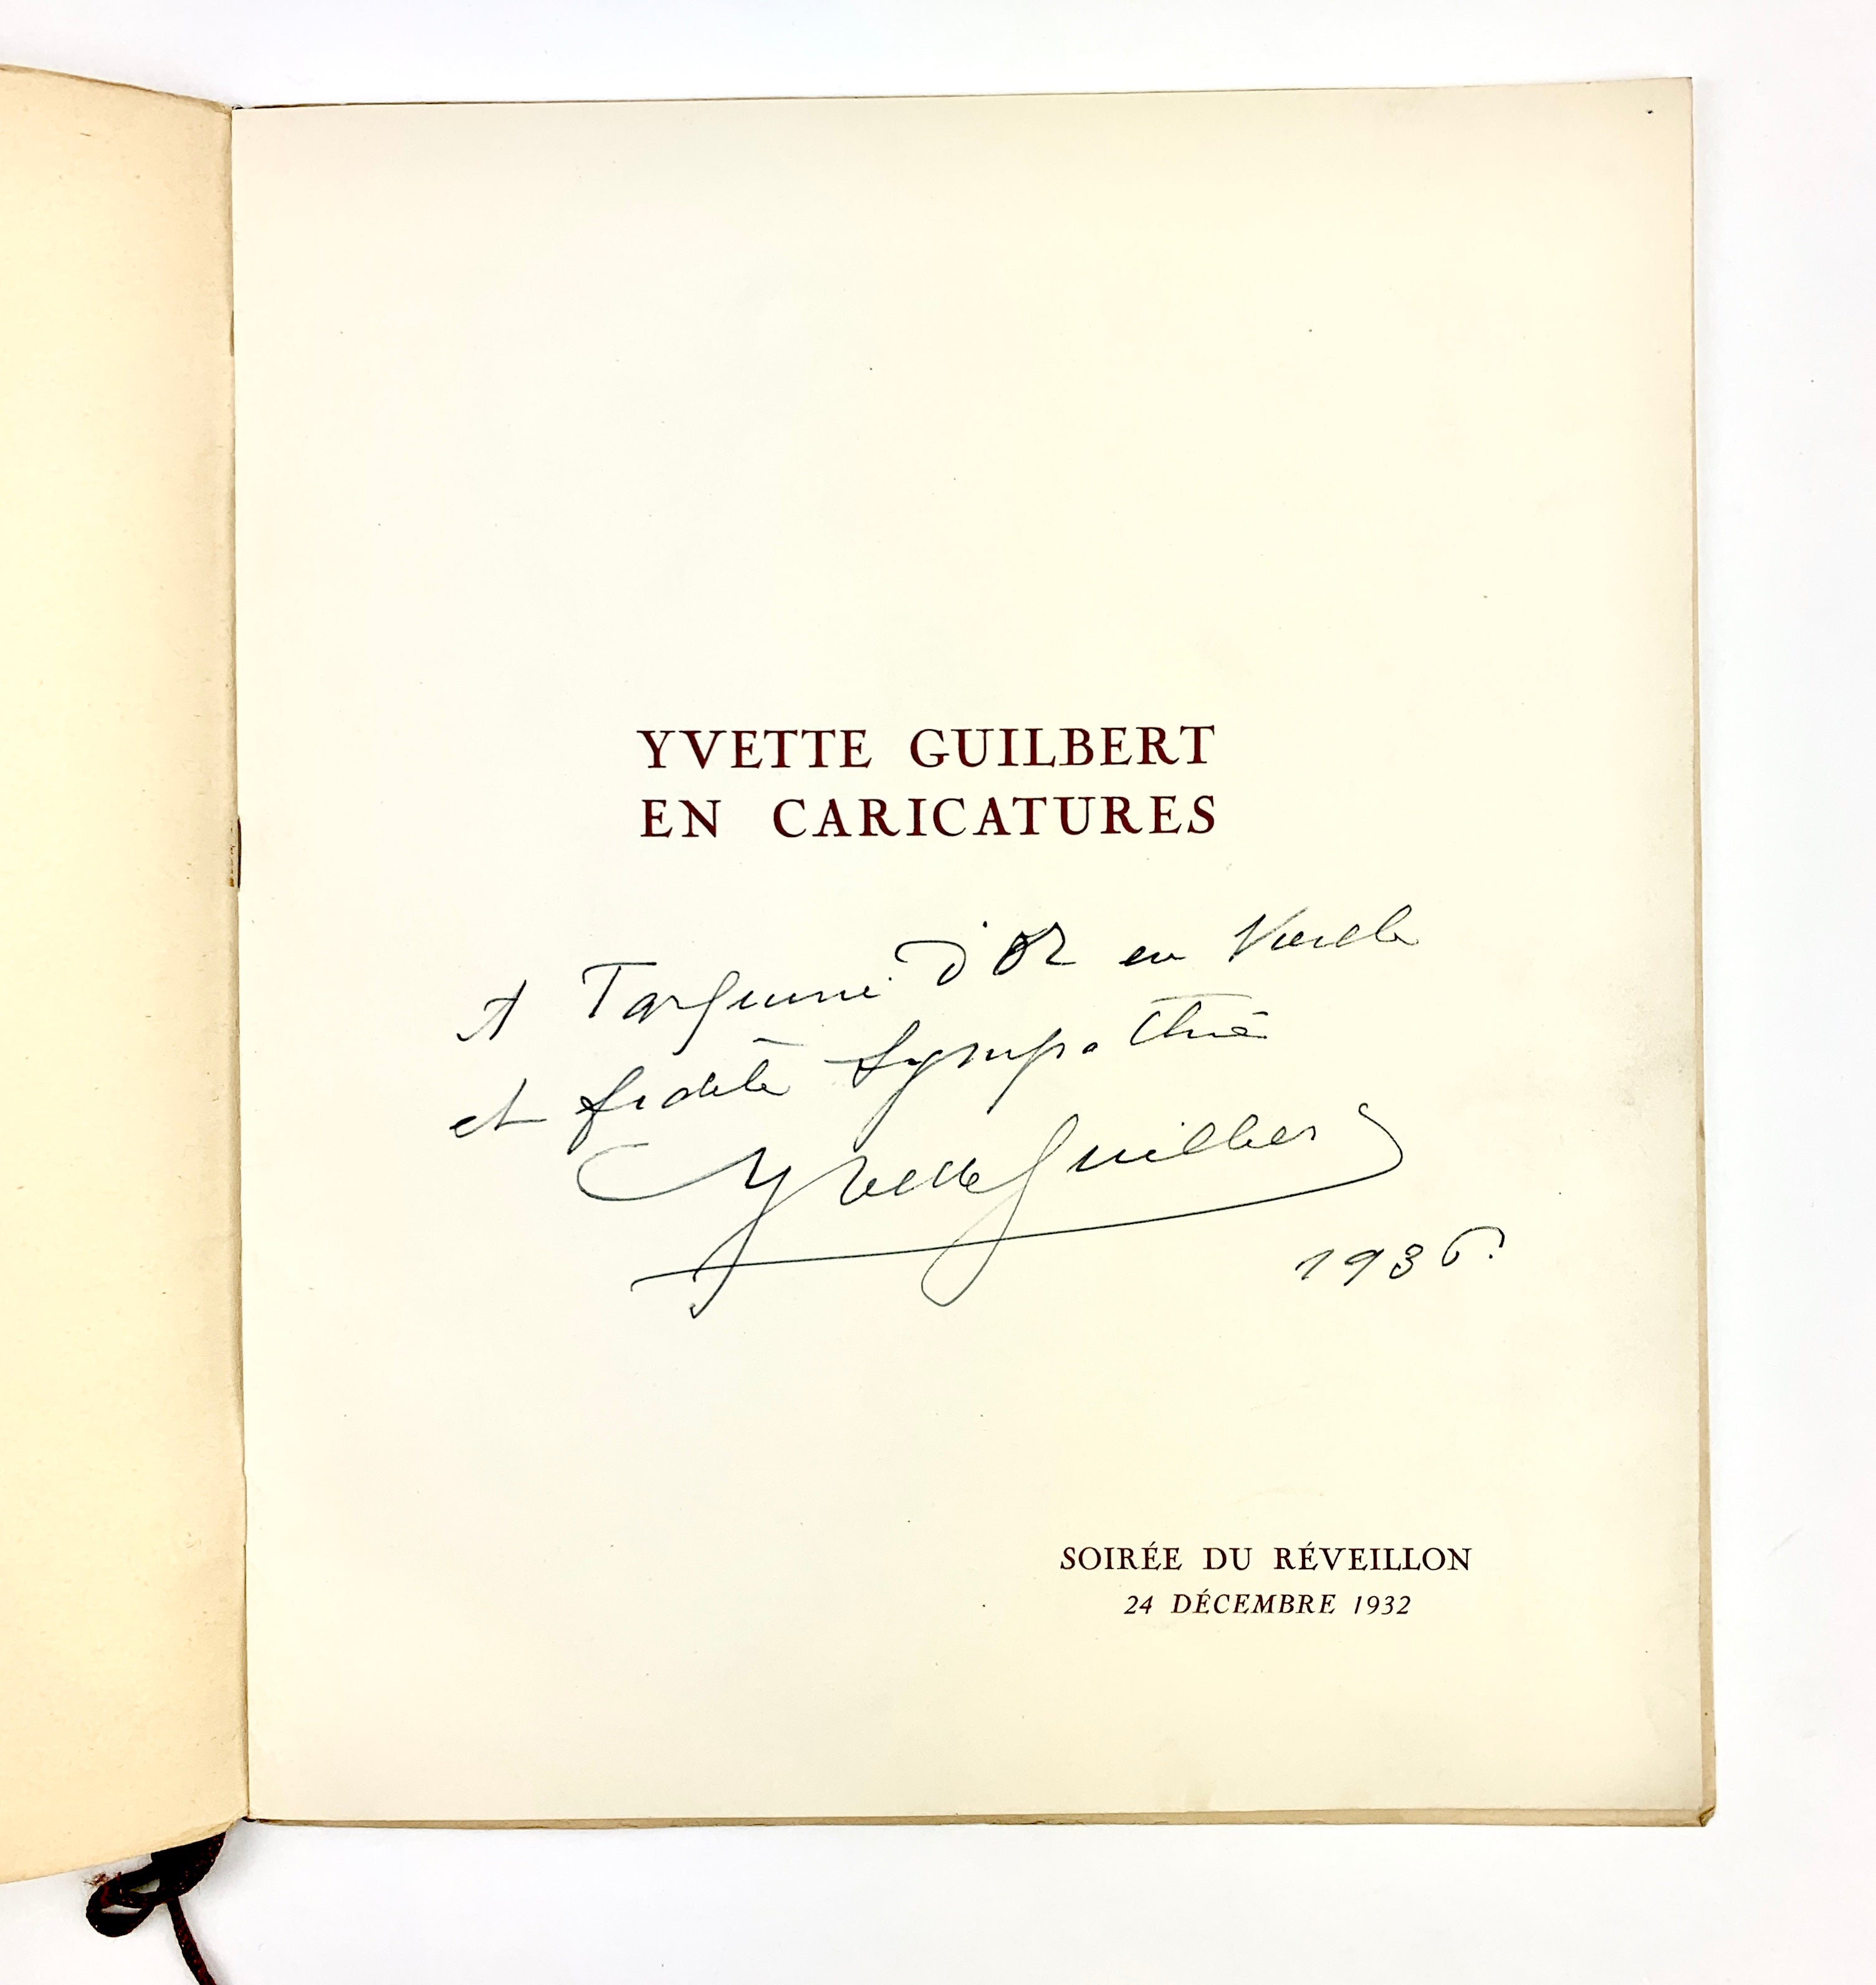 YVETTE GUILBERT
EN CARICATURES
A Tarquini d'Or en Vieille
et fidèle Sympathie
Yvette Guilbert
1936.
SOIRÉE DU RÉVEILLON
24 DÉCEMBRE 1932